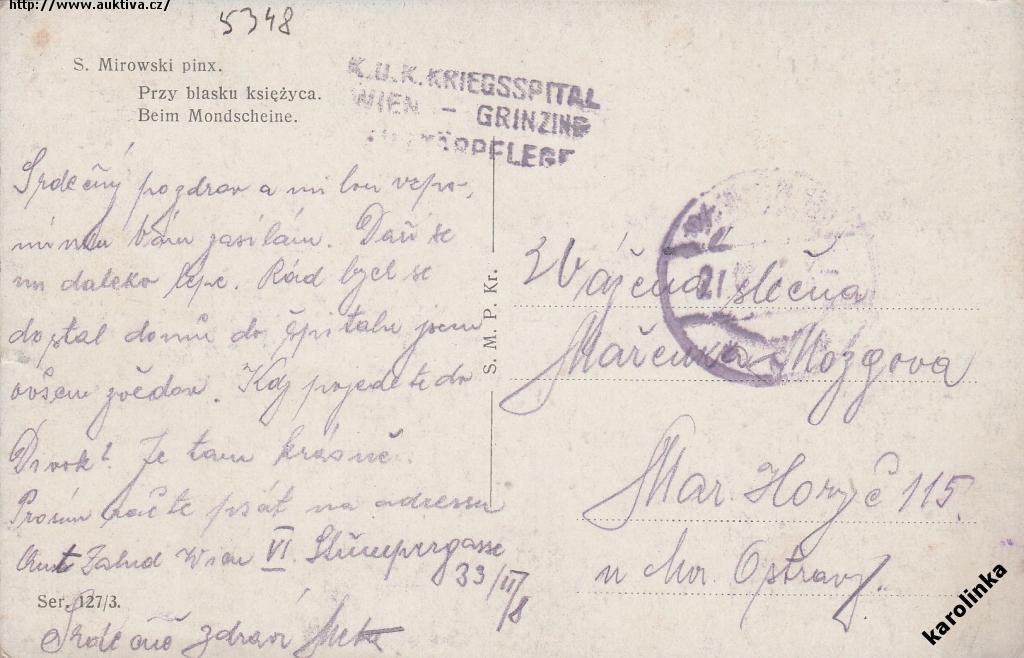 http://www.auktiva.cz/
5348
S. Mirowski pinx.
Przy blasku księżyca.
Beim Mondscheine.
K.U.K. KRIEGSSPITAL
WIEN - GRINZING
Srdečný pozdrav a milou vzpo-
mínku Vám zasílám. Daří se
mi daleko lépe. Rád bych se
dostal domů do špitalu jsem
ovšem zvědav. Kdy pojedete do
Divok? Je tam krásně.
Prosím račte psát na adressu
Ant Zahud Wien VI. Stumpergasse
33/II/8
Srdečně zdraví
S. M. P. Kr.
Vážená slečna
Mařenka Mozgova
Mar. Hory č 115.
u Mor. Ostravy.
21
Ser. 127/3.
karolinka